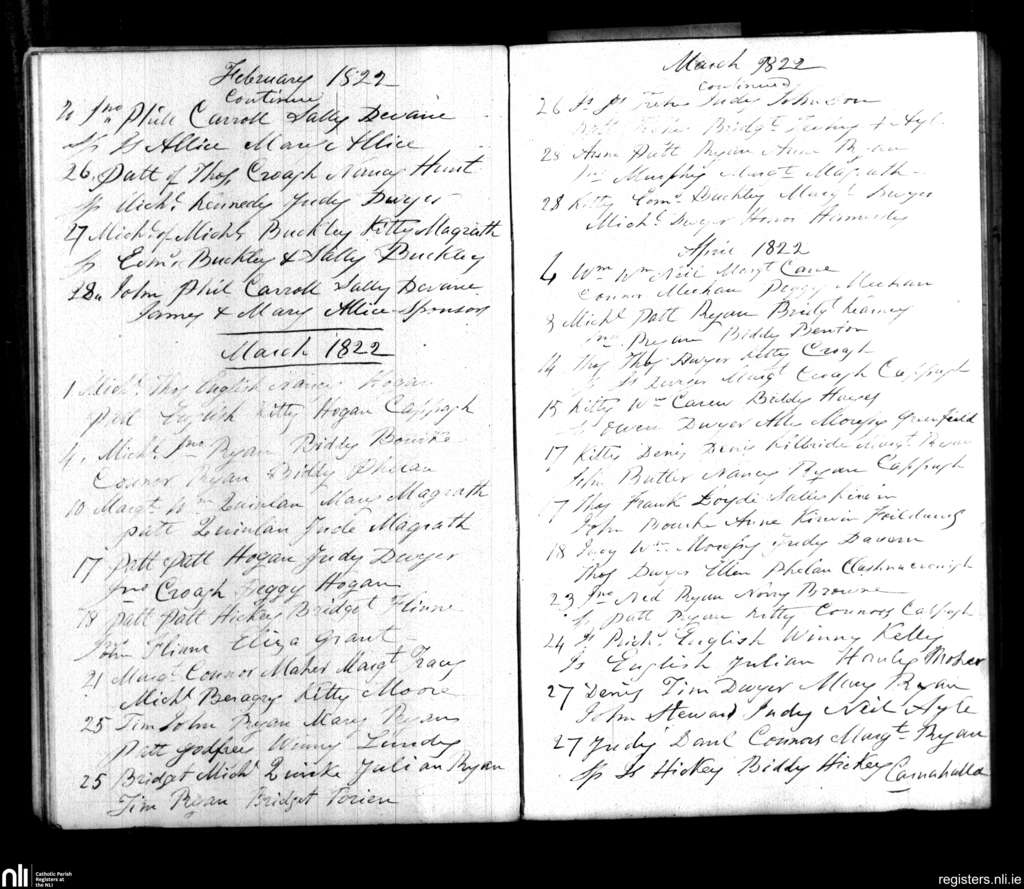 February 1822
Continue
Jno Phill Carroll Sally Devane
Sp Js Allice Mary Allice
26. Patt of Thos Croagh Nancy Hunt
Sp Michl Kennedy Judy Dwyer
27 Michl of Michl Buckley Kitty Magrath
Sp Edmd Buckley & Sally Buckley
28 John Phil Carroll Sally Devane
James & Mary Allice Sponsors
March 1822
1 Michl Thos English Nancy Hogan
Patt English Kitty Hogan Cappagh
4. Michl Jno Ryan Biddy Bourke
Connor Ryan Biddy Phelan
10 Margt Wm Quinlan Mary Magrath
Patt Quinlan Jude Magrath
17 Patt Patt Hogan Judy Dwyer
Jno Croagh Peggy Hogan
18 Patt Patt Hickey Bridget Flinne
John Flinne Eliza Grant
21 Margt Connor Maher Margt Tracy
Michl Beragry Kitty Moore
25 Tim John Ryan Mary Ryan
Patt Godfree Winny Lundy
25 Bridget Michl Quirke Julian Ryan
Tim Ryan Bridget
March 1822
Continued
26 Judy Johnson
Patt Bridgt
28 Anne Patt Ryan Anne Ryan
Jno Murphy Margt Magrath
28 Kitty Edmd Buckley Margt Dwyer
Michl Dwyer Honor Kennedy
April 1822
Wm Wm Neil Margt Cane
Connor Meehan Peggy Meehan
Michl Patt Ryan Bridgt Kearney
Jno Ryan Biddy Benton
14 Thos Thos Dwyer Kitty Croagh
Sp Js Dwyer Margt Croagh Cappagh
15 Kitty Wm Carew Biddy Hayes
Owen Dwyer Greenfield
17 Kitty Denis Denis Kilbride Margt Ryan
John Butler Nancy Ryan Cappagh
17 Thos Frank Loyde
John Bourk Anne Kirwin
18 Wm Judy Davern
Thos Dwyer Ellen Phelan
23 Jno Ned Ryan Norry Browne
Sp Patt Ryan Kitty Connors Cappagh
24 Js Richd English Winny Kelly
Js English Julian Hanly Moher
27 Denis Tim Dwyer Mary Ryan
John Steward Judy Neil Ayle
27 Judy Danl Connors Margt Ryan
Sp Js Hickey Biddy Hickey Carnahalla
nli
Catholic Parish
Registers at
the NLI
registers.nli.ie